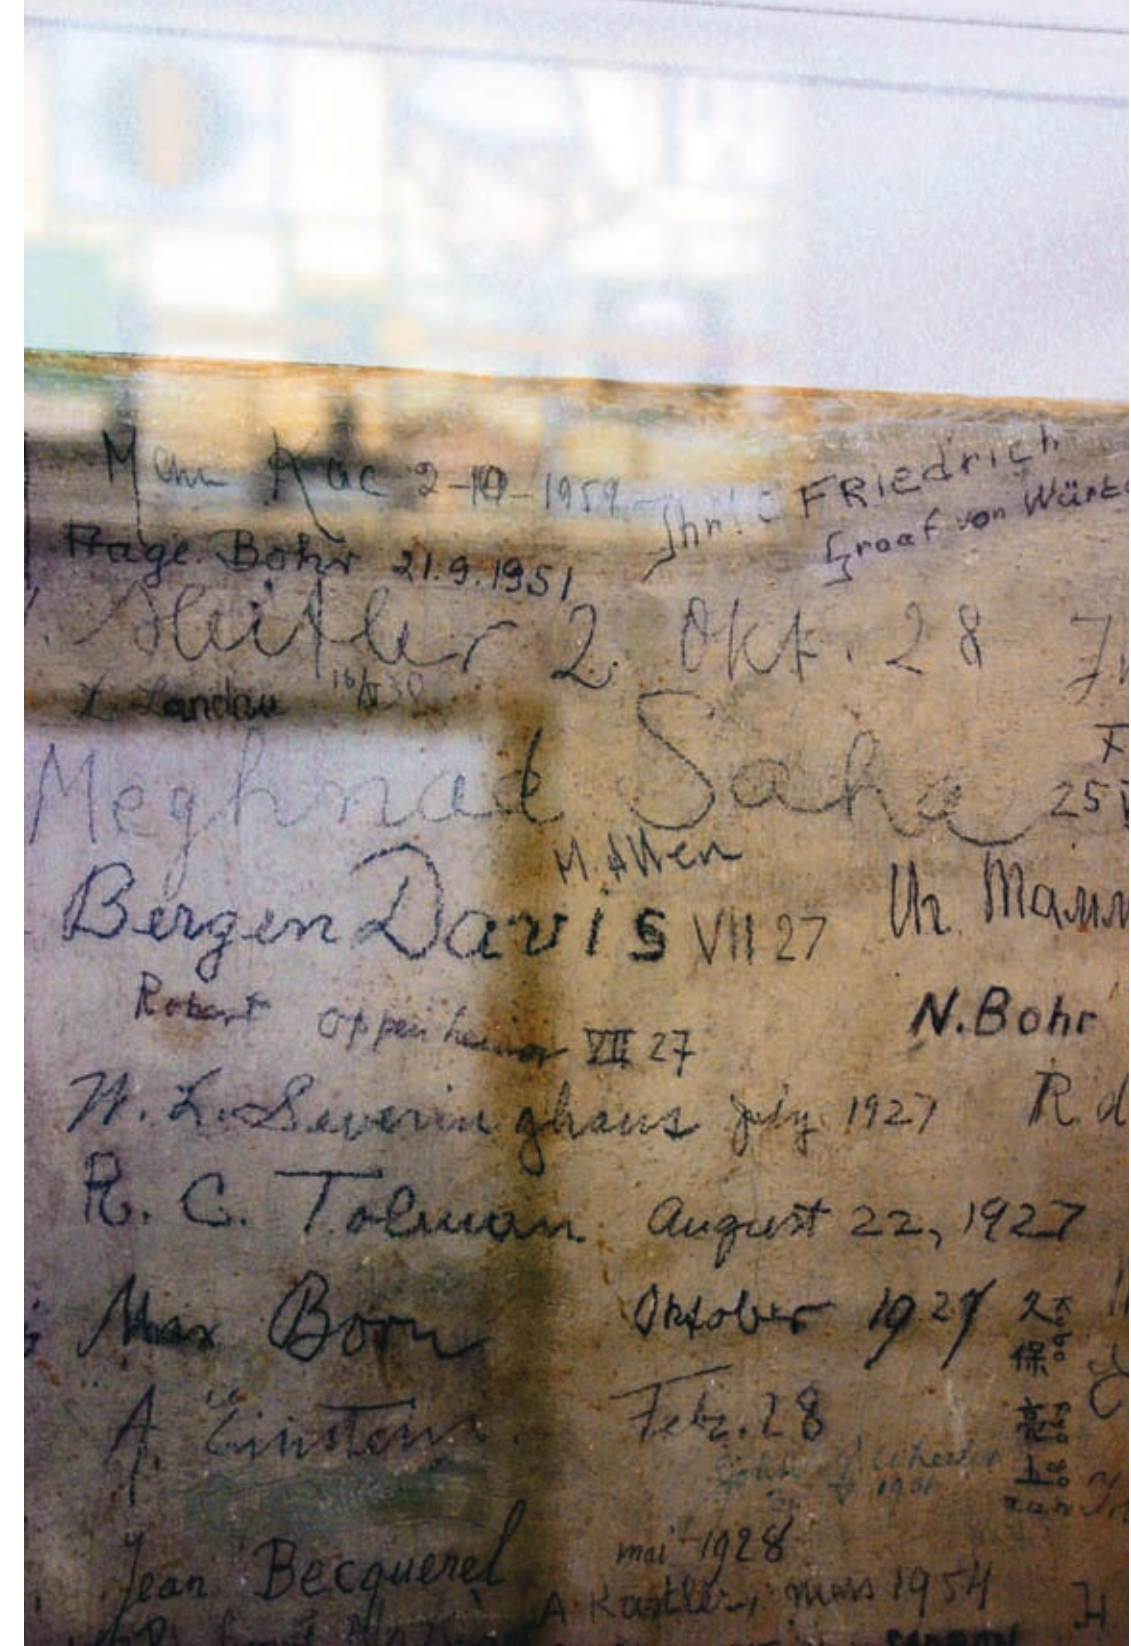 Kac 2-10-1959
FRiedrich
Graaf von Würt
Aage Bohr 21.9.1951
Heitler 2. Okt. 28
L. Landau
Meghnad Saha
25
M. Allen
Bergen Davis VII 27
Robert Oppenheimer VII 27
N. Bohr
W. L. Severinghaus july 1927
R. d
R. C. Tolman August 22, 1927
Max Born Oktober 1927
久保亮五
A. Einstein. Febr. 28
John A. Wheeler
Jean Becquerel mai 1928
A Kastler, mars 1954
H.